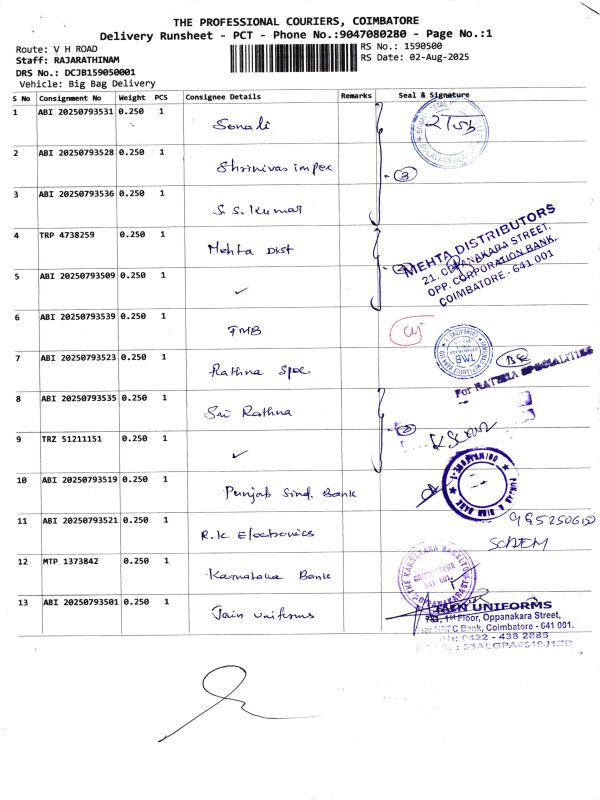 THE PROFESSIONAL COURIERS, COIMBATORE
Delivery Runsheet - PCT - Phone No.:9047080280 - Page No.:1
Route: V H ROAD
RS No.: 1590500
Staff: RAJARATHINAM
RS Date: 02-Aug-2025
DRS No.: DCJB159050001
Vehicle: Big Bag Delivery
S No Consignment No Weight PCS Consignee Details Remarks Seal & Signature
1 ABI 20250793531 0.250 1 Sonali
2 ABI 20250793528 0.250 1 Shrinivas impex
3 ABI 20250793536 0.250 1 S. S. Kumar
3
4 TRP 4738259 0.250 1 Mehta Dist
MEHTA DISTRIBUTORS
21, OPPANAKARA STREET,
OPP. CORPORATION BANK,
COIMBATORE - 641 001
5 ABI 20250793509 0.250 1 ✓
6 ABI 20250793539 0.250 1 TMB
TMB
7 ABI 20250793523 0.250 1 Rathna Spec
For RATHNA SPECIALITIES
8 ABI 20250793535 0.250 1 Sri Rathna
9 TRZ 51211151 0.250 1 ✓
10 ABI 20250793519 0.250 1 Punjab Sind. Bank
PUNJAB & SIND BANK
11 ABI 20250793521 0.250 1 R.K Electronics
12 MTP 1373842 0.250 1 Karnataka Bank
THE KARNATAKA BANK LTD
COIMBATORE
641 001
13 ABI 20250793501 0.250 1 Jain uniforms
JAIN UNIFORMS
1st Floor, Oppanakara Street,
HDFC Bank, Coimbatore - 641 001.
Ph: 0422 - 438 2885